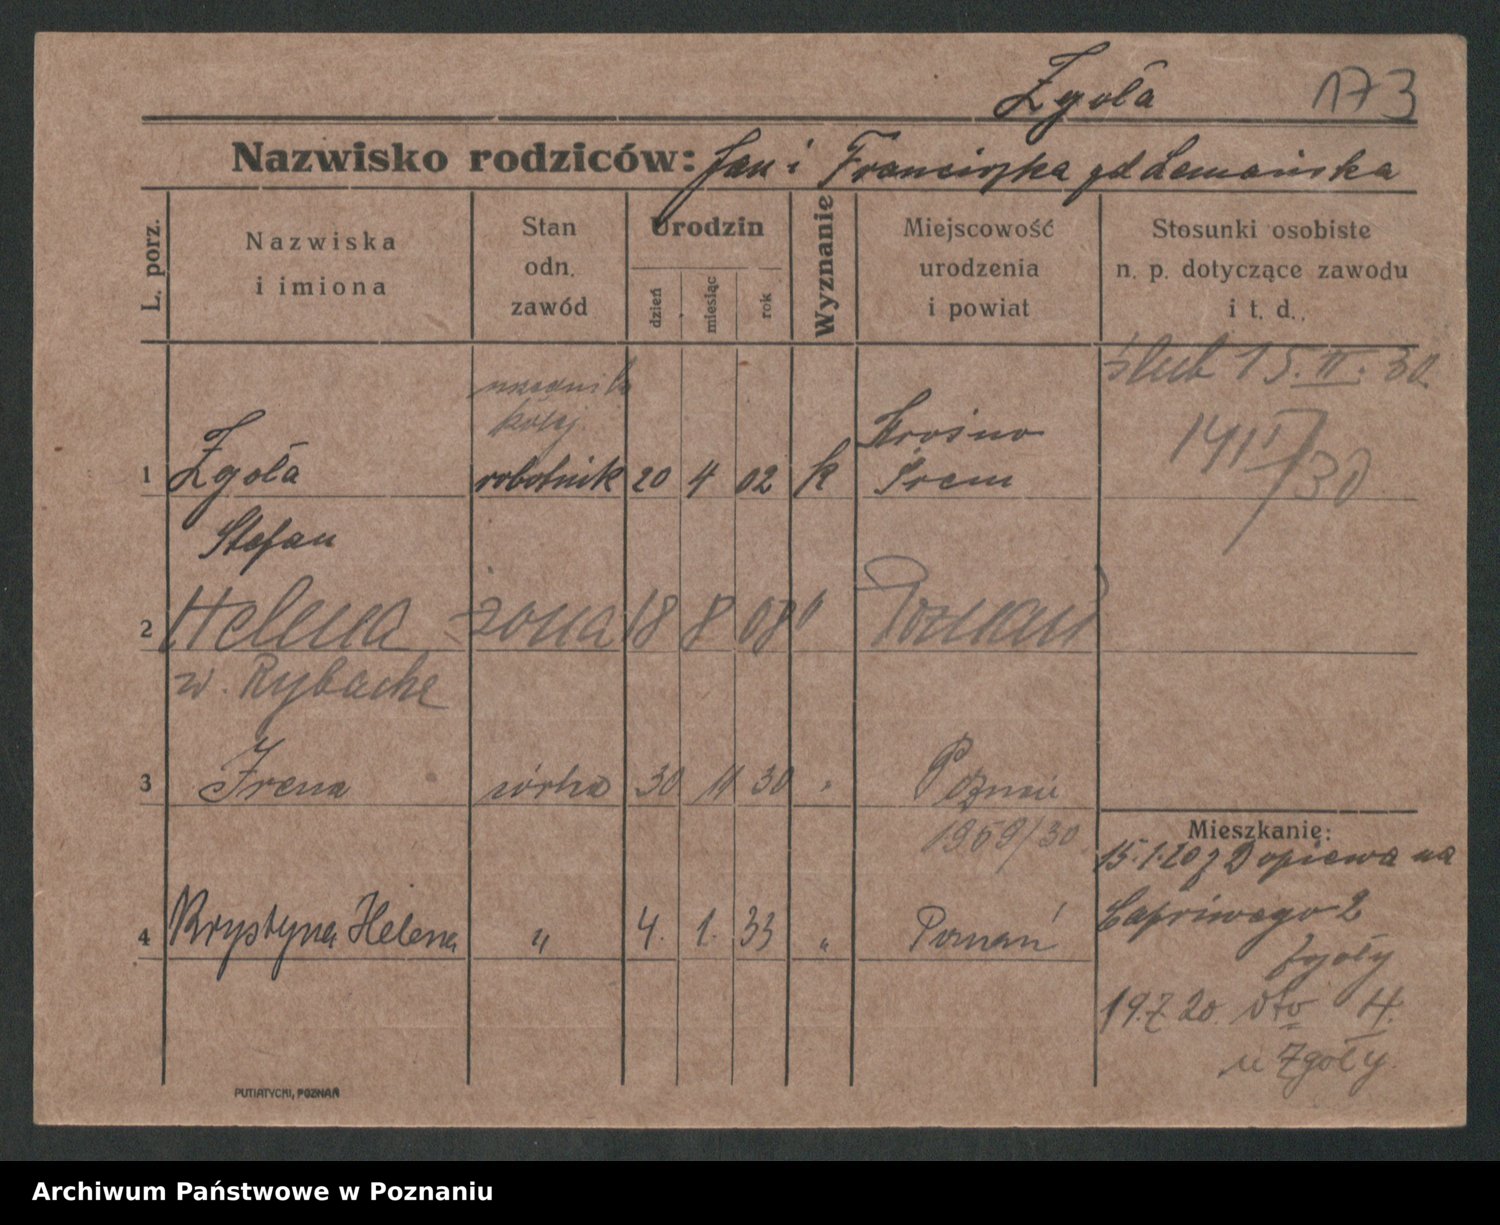 Zgoła 173
Nazwisko rodziców: Jan i Franciszka zd Lamańska
L. porz.
Nazwiska
i imiona
Stan
odn.
zawód
Urodzin
dzień
miesiąc
rok
Wyznanie
Miejscowość
urodzenia
i powiat
Stosunki osobiste
n. p. dotyczące zawodu
i t. d.
ślub 15. II. 30.
kolej.
1 Zgoła robotnik 20 4 02 k Krośno
Śrem
Stefan
2 Helena żona 18 8 08 " Poznań
w. Rybacke
3 Irena córka 30 11 30 " Poznań
1959/30
4 Krystyna Helena " 4. 1. 33 " Poznań
Mieszkanie:
15.1.20 z Dopiewa na
Capriwego 2
Zgoły
19.7.20. dto H.
u Zgoły
PUTIATYCKI, POZNAŃ
Archiwum Państwowe w Poznaniu